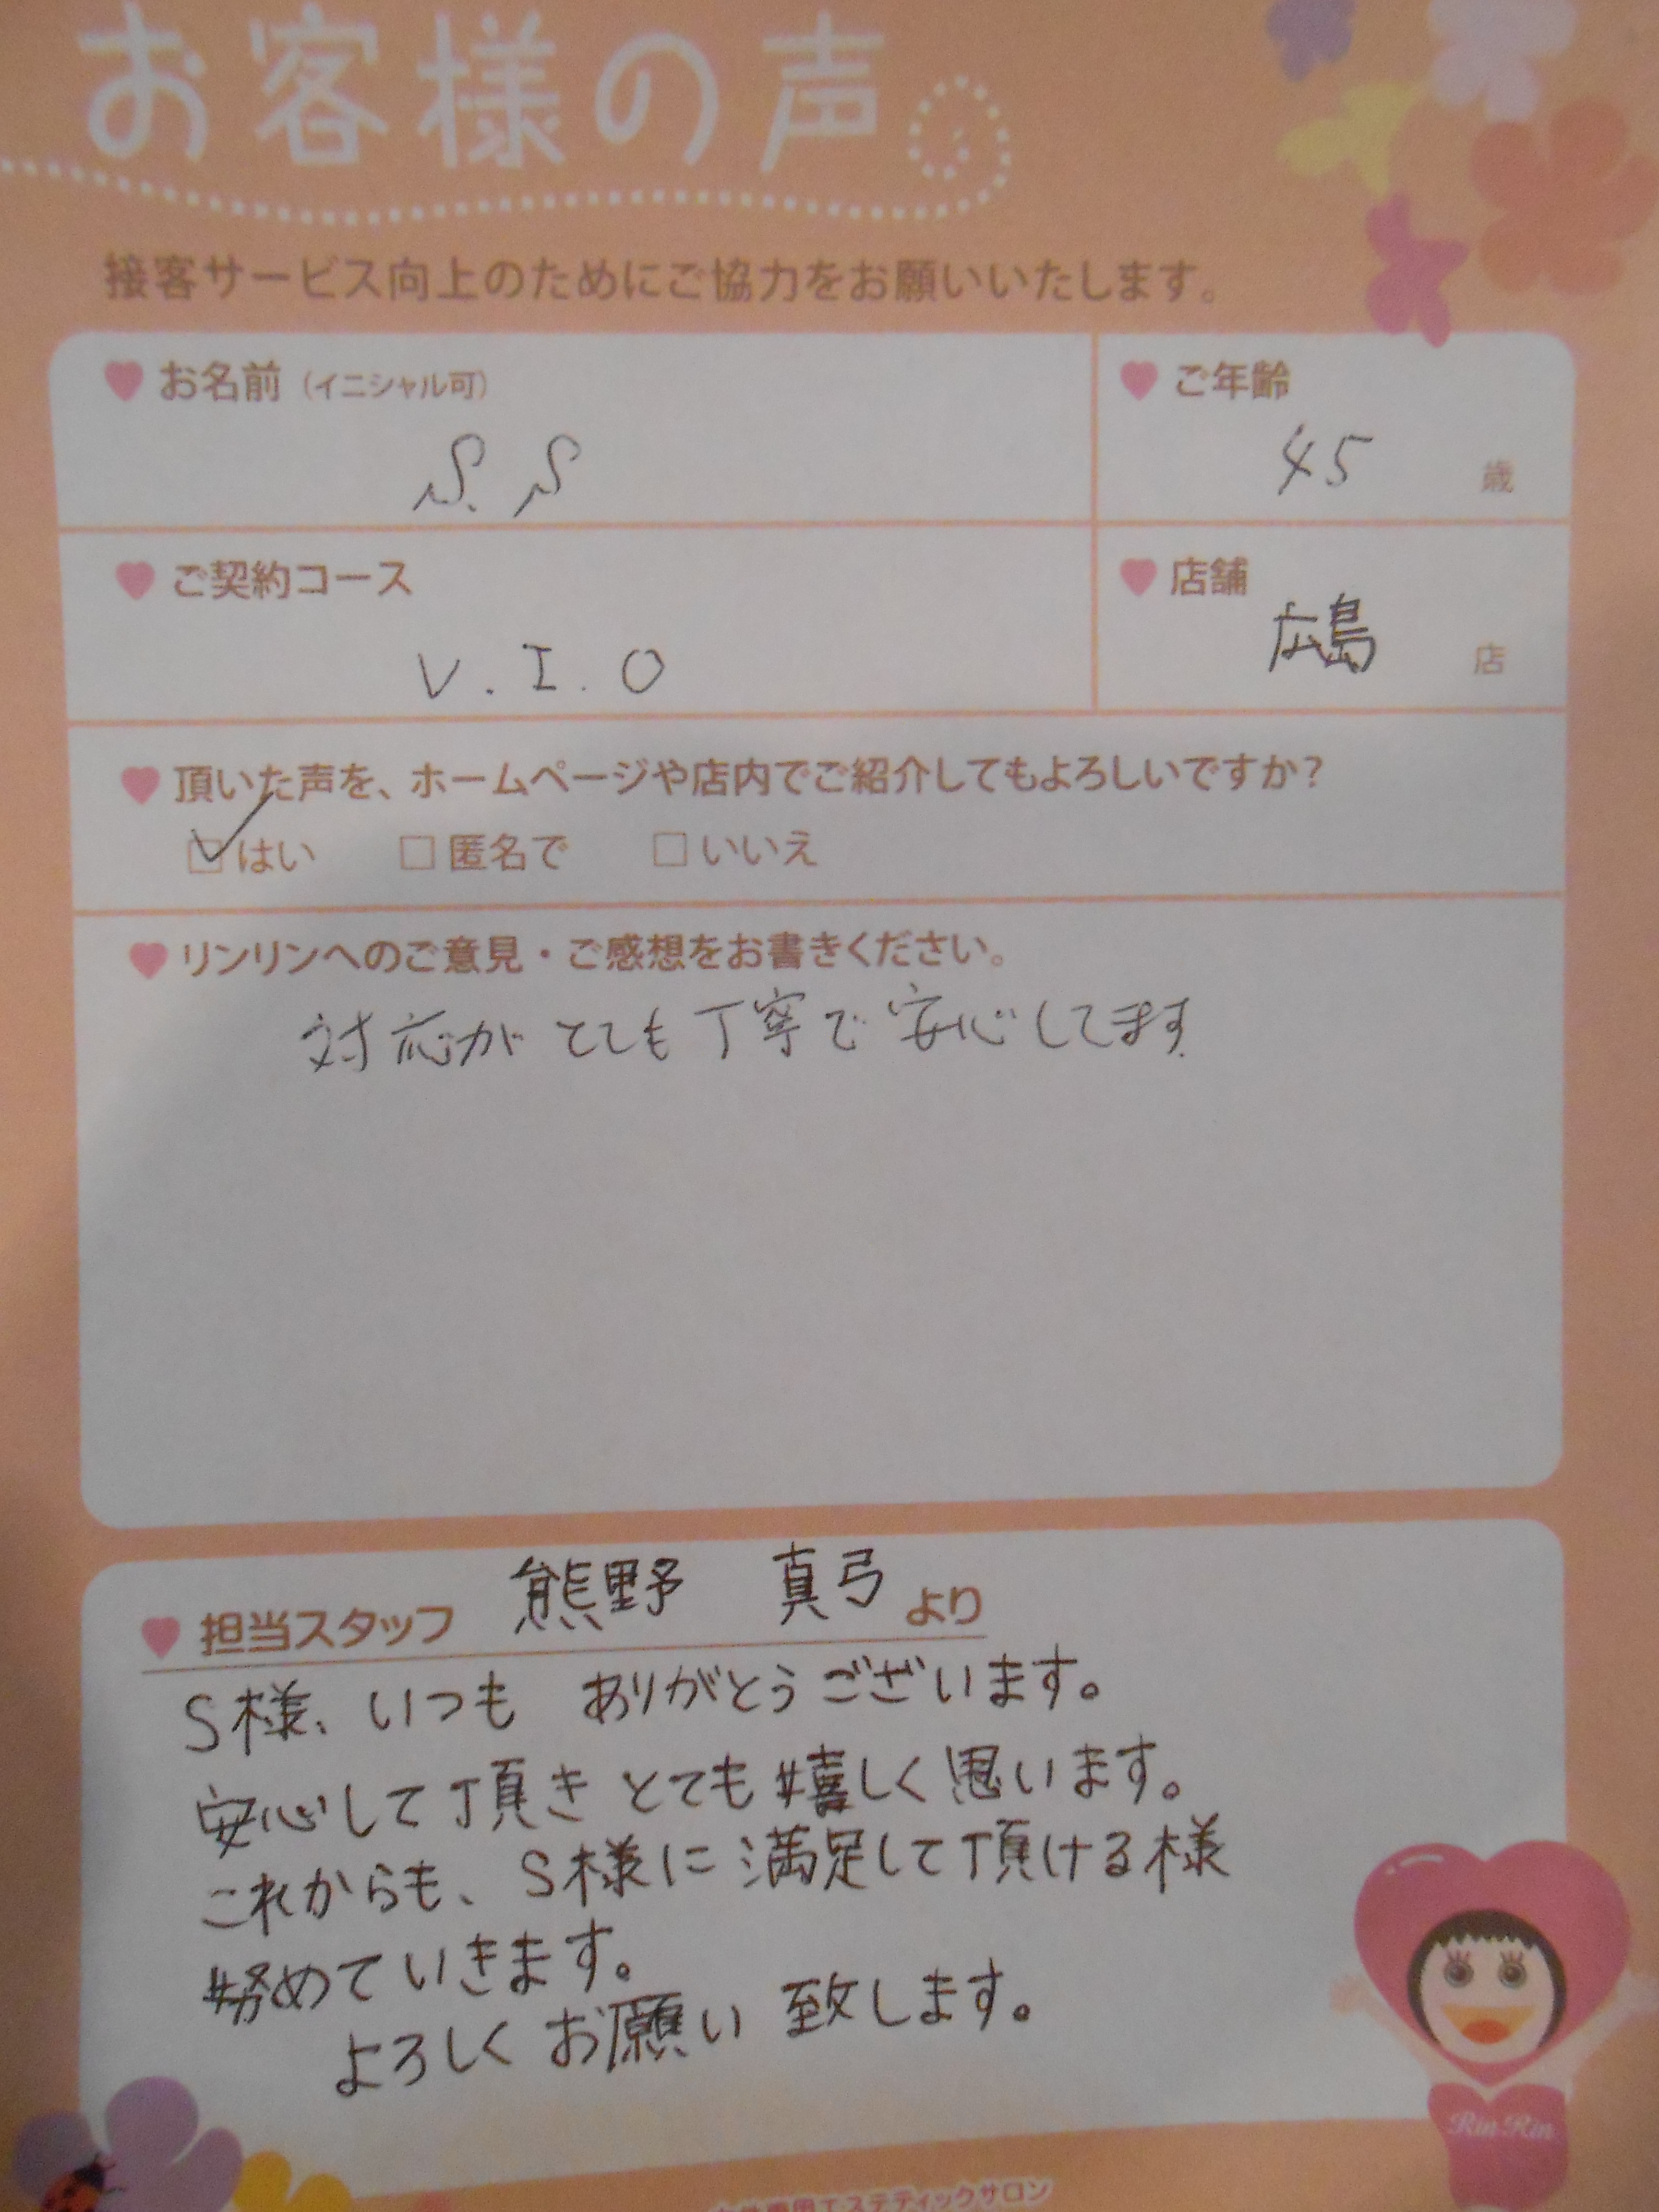 お客様の声
接客サービス向上のためにご協力をお願いいたします。
お名前（イニシャル可）
S.S
ご年齢
45 歳
ご契約コース
V.I.O
店舗
広島 店
頂いた声を、ホームページや店内でご紹介してもよろしいですか?
はい 匿名で いいえ
リンリンへのご意見・ご感想をお書きください。
対応がとても丁寧で安心してます
担当スタッフ 熊野 真弓 より
S様、いつも ありがとうございます。
安心して頂き とても嬉しく思います。
これからも、S様に満足して頂ける様
努めていきます。
よろしくお願い致します。
Rin Rin
専用エステティックサロン